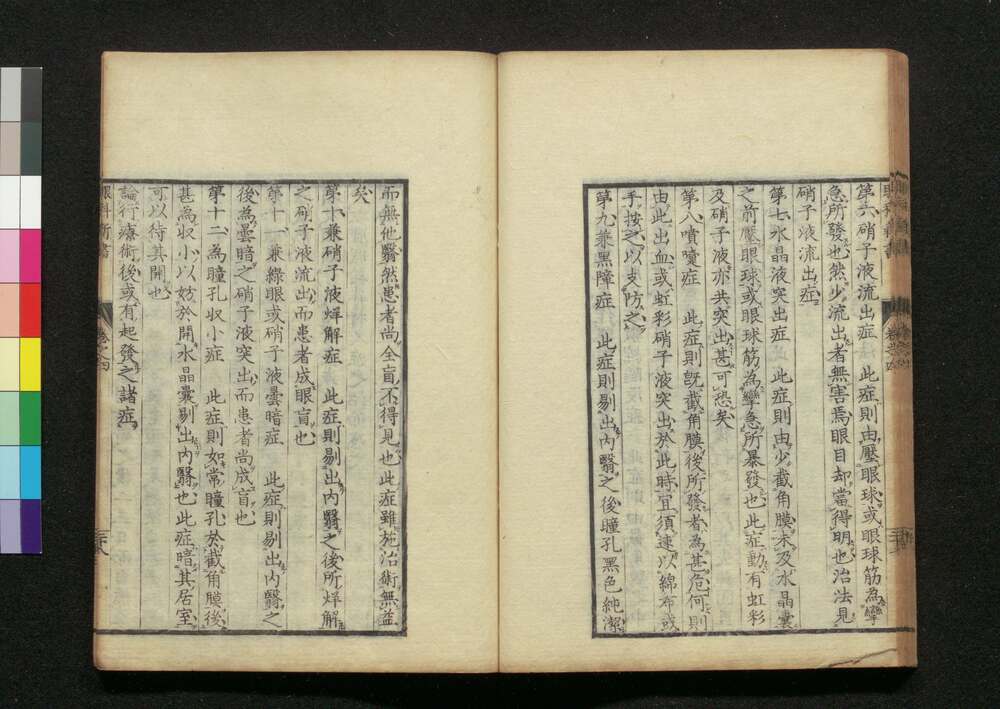 第六硝子液流出症　此症則由壓眼球或眼球筋為攣
急所發也然少流出者無害焉眼目却當得明也治法見
硝子液流出症
第七水晶液突出症　此症則由少截角膜未及水晶囊
之前壓眼球或眼球筋為攣急所暴發也此症動有虹彩
及硝子液亦共突出甚可恐矣
第八噴噴症　此症則既截角膜後所發者為甚危何則
由此出血或虹彩硝子液突出於此時宜須速以綿布或
手按之以支防之
第九兼黑障症　此症則剔出內翳之後瞳孔黑色純潔
而無他翳然患者尚全盲不得見也此症雖施治術無益
矣
第十兼硝子液烊解症　此症則剔出內翳之後所烊解
之硝子液流出而患者成眼盲也
第十一兼綠眼或硝子液曇暗症　此症則剔出內翳之
後為曇暗之硝子液突出而患者尚成盲也
第十二為瞳孔收小症　此症則如常瞳孔於截角膜後
甚為收小以妨於開水晶囊剔出內翳也此症暗其居室
可以待其開也
論行療術後或有起發之諸症
眼科新書
卷之四